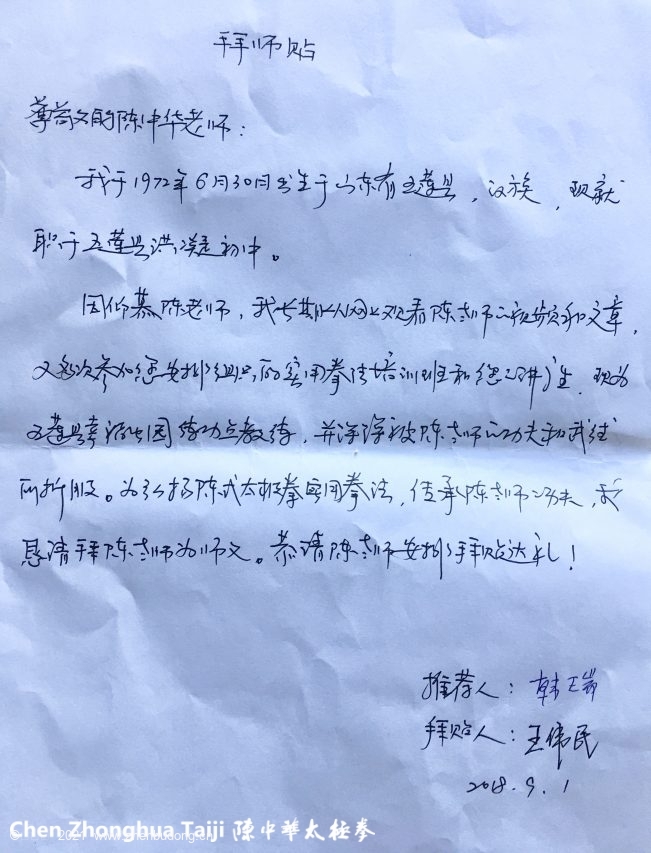 拜师贴
尊敬的陈中华老师：
我于1972年6月30日出生于山东省五莲县，汉族，现就
职于五莲县洪凝初中。
因仰慕陈老师，我长期从网上观看陈老师的视频和文章，
又多次参加您安排组织的实用拳法培训班和您的讲座，现为
五莲县 公园练功点教练，并深深被陈老师的功夫和武德
所折服。为弘扬陈式太极拳实用拳法，传承陈老师的功夫，我
恳请拜陈老师为师父。恭请陈老师安排拜贴达礼！
推荐人：韩
拜贴人：王伟民
2018.9.1
Chen Zhonghua Taiji 陳中華太极拳